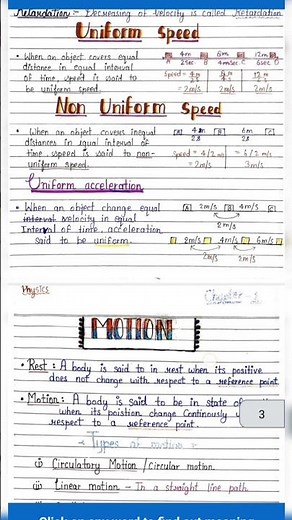 Retardation:- Decreasing of velocity is called Retardation.
Uniform Speed
• When an object covers equal
distance in equal interval
of time, speed is said to
be uniform speed.
4m 6m 12m
A 2sec B C 6sec D
Speed = 4m 12m
= 2m/s 2m/s 2m/s
Non Uniform Speed
• When an object covers inequal
distances in equal interval of
time. speed is said to non-
uniform speed.
A 4m B 6m C
2s 2s
Speed = 4/2 m/s = 6/2 m/s
= 2m/s 3m/s
Uniform acceleration
• When an object change equal
interval velocity in equal
Interval of time, acceleration
said to be uniform.
A 2m/s B 4m/s C
2m/s
2m/s 4m/s 6m/s
2m/s 2m/s
Physics Chapter-
MOTION
• Rest: A body is said to in rest when its positive
does not change with respect to a reference point
• Motion: A body is said to be in state of
when its poistion change Continously
respect to a reference point.
3
Types of motion
(i) Circulatory Motion / Circular motion.
(ii) Linear motion - In a straight line path.
Click on any word to find out meaning